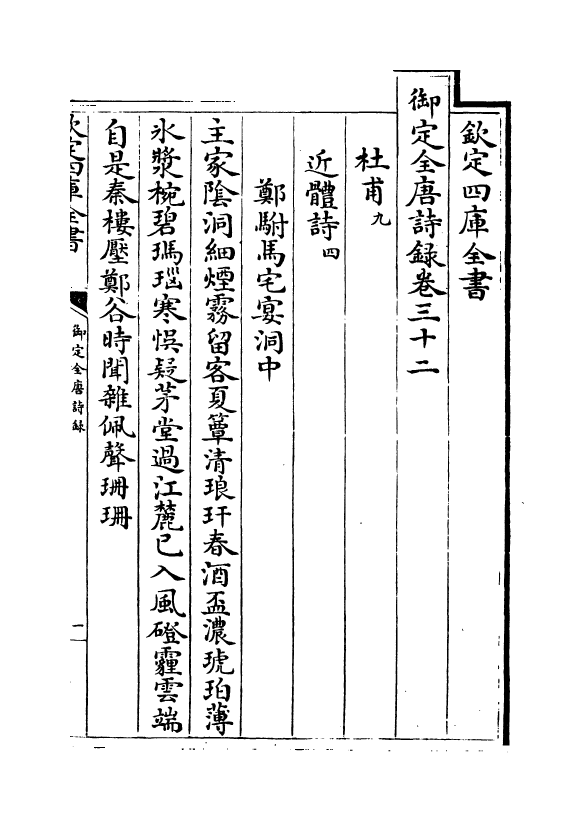 欽定四庫全書
御定全唐詩録卷三十二
杜甫九
近體詩四
鄭駙馬宅宴洞中
主家陰洞細煙霧留客夏簟清琅玕春酒盃濃琥珀薄
氷漿椀碧瑪瑙寒悞疑茅堂過江麓已入風磴霾雲端
自是秦樓壓鄭谷時聞雜佩聲珊珊
欽定四庫全書
御定全唐詩録